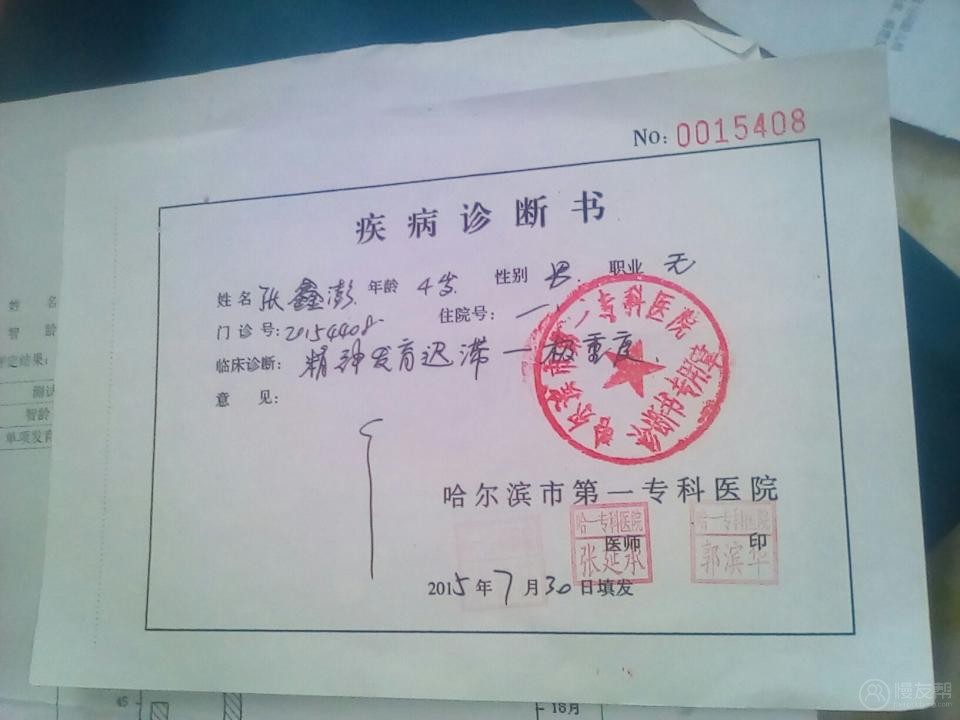 No: 0015408
疾病诊断书
姓名 张鑫澎 年龄 4岁 性别 男 职业 无
门诊号: 20154408 住院号: 一
临床诊断: 精神发育迟滞一极重度
意见:
哈尔滨市第一专科医院
哈尔滨市第一专科医院
哈一专科医院
张延承
医师
哈一专科医院
郭滨华
印
2015年7月30日填发
姓 名
智 龄
评定结果:
测试
智龄
单项发育
45
18月
慢友帮